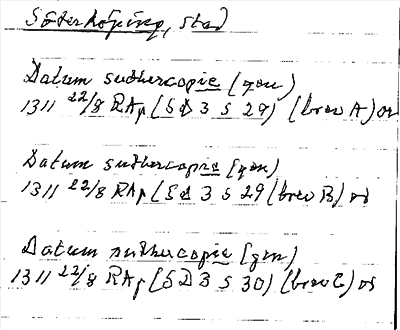 Söderköping, stad
Datum suthercopie (gen)
1311 22/8 RAp (SD 3 s 29) (brev A) or
Datum suthercopie (gen)
1311 22/8 RAp (SD 3 s 29 (brev B) or
Datum suthercopie (gen)
1311 22/8 RAp (SD 3 s 30) (brev C) or